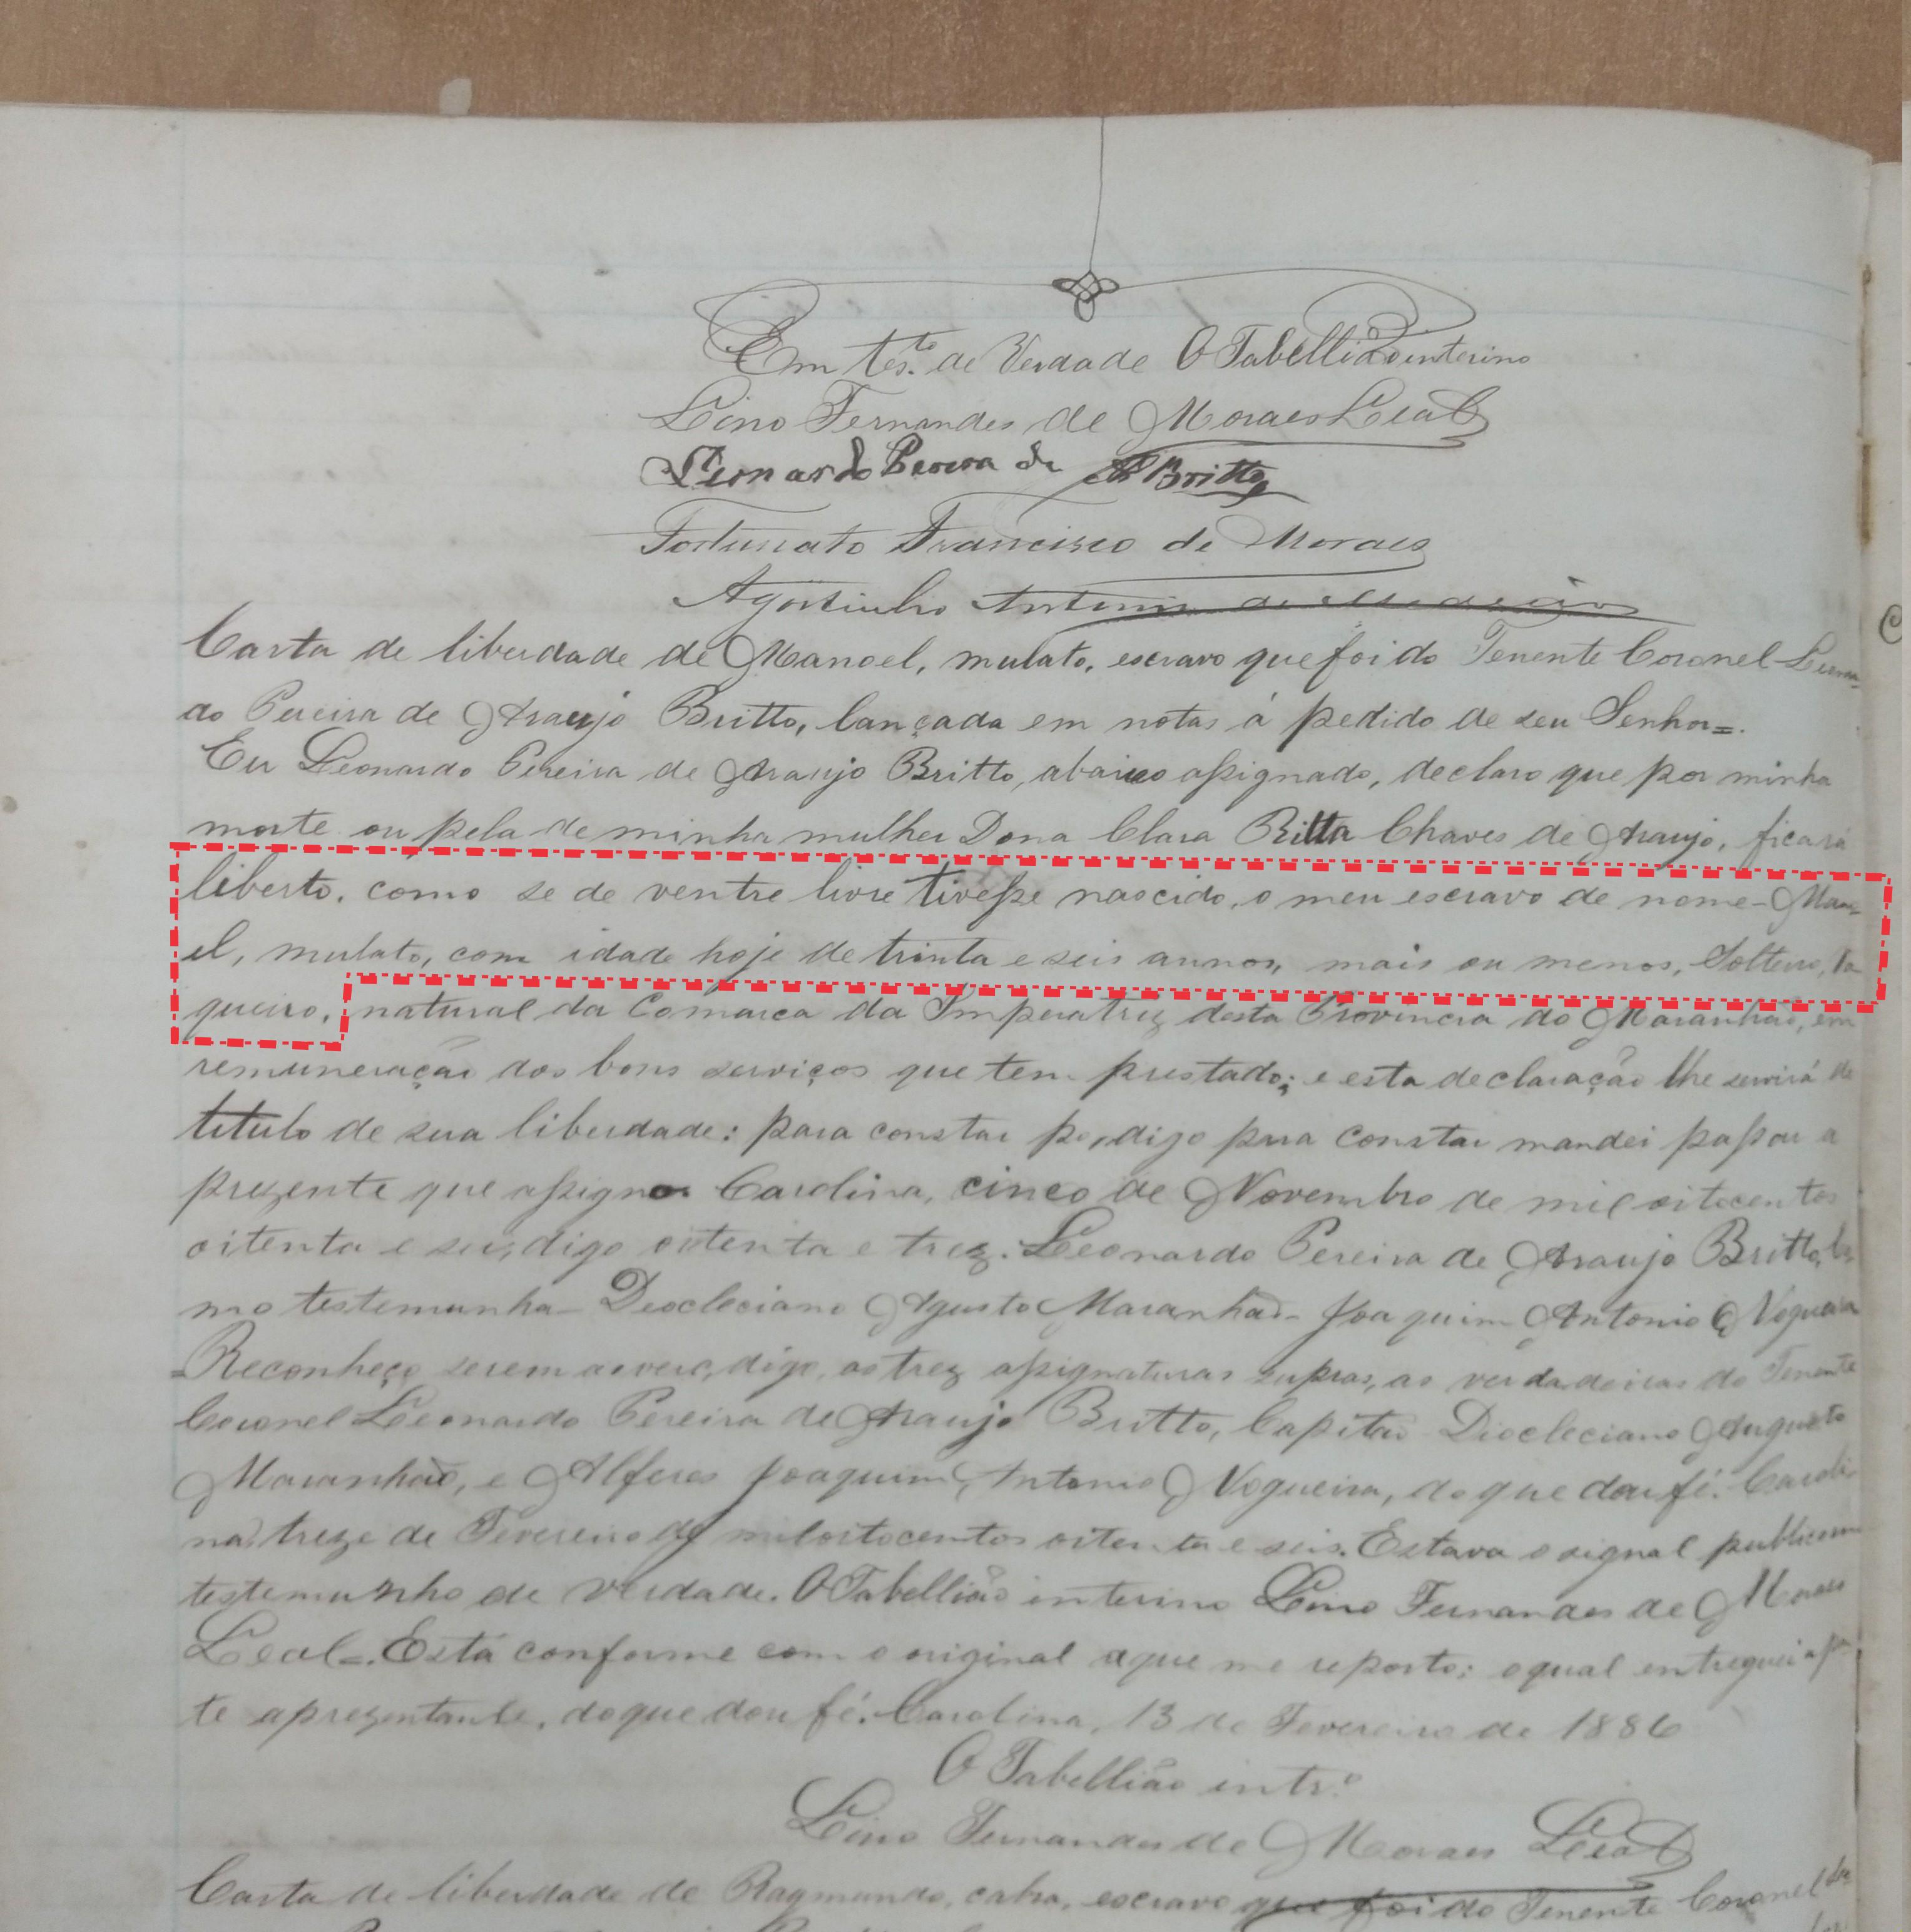 Em tes.to de Verdade O Tabellião interino
Lino Fernandes de Moraes Leal
Leonardo Pereira de A Britto
Fortunato Francisco de Moraes
Agostinho Antonio de
Carta de liberdade de Manoel, mulato, escravo que foi do Tenente Coronel Leonar-
do Pereira de Araujo Britto, lançada em notas á pedido de seu Senhor=.
Eu Leonardo Pereira de Araujo Britto, abaixo assignado, declaro que por minha
morte ou pela de minha mulher Dona Clara Ritta Chaves de Araujo, ficará
liberto, como se de ventre livre tivesse nascido, o meu escravo de nome - Mano-
el, mulato, com idade hoje de trinta e seis annos, mais ou menos, Solteiro, Va
queiro, natural da Comarca da Imperatriz desta Provincia do Maranhão, em
remuneração dos bons serviços que tem prestado; e esta declaração lhe servirá de
titulo de sua liberdade: para constar po, digo para constar mandei passar a
prezente que assigno. Carolina, cinco de Novembro de mil oitocentos
oitenta e seis, digo oitenta e trez. Leonardo Pereira de Araujo Britto, Co
mo testemunha - Deocleciano Agusto Maranhão - Joaquim Antonio Nogueira
Reconheço serem as verd, digo, as trez assignaturas supras, as verdadeiras do Tenente
Coronel Leonardo Pereira de Araujo Britto, Capitão Diocleciano Augusto
Maranhão, e Alferes Joaquim Antonio Nogueira, do que dou fé. Caroli
na, treze de Fevereiro de mil oitocentos oitenta e seis. Estava o signal publico em
testemunho de verdade. O Tabellião interino Lino Fernandes de Moraes
Leal=. Está conforme com o original a que me reporto; o qual entreguei a par
te aprezentante, do que dou fé. Carolina, 13 de Fevereiro de 1886
O Tabellião intr.o
Lino Fernandes de Moraes Leal
Carta de liberdade de Raymundo, cabra, escravo que foi do Tenente Coronel